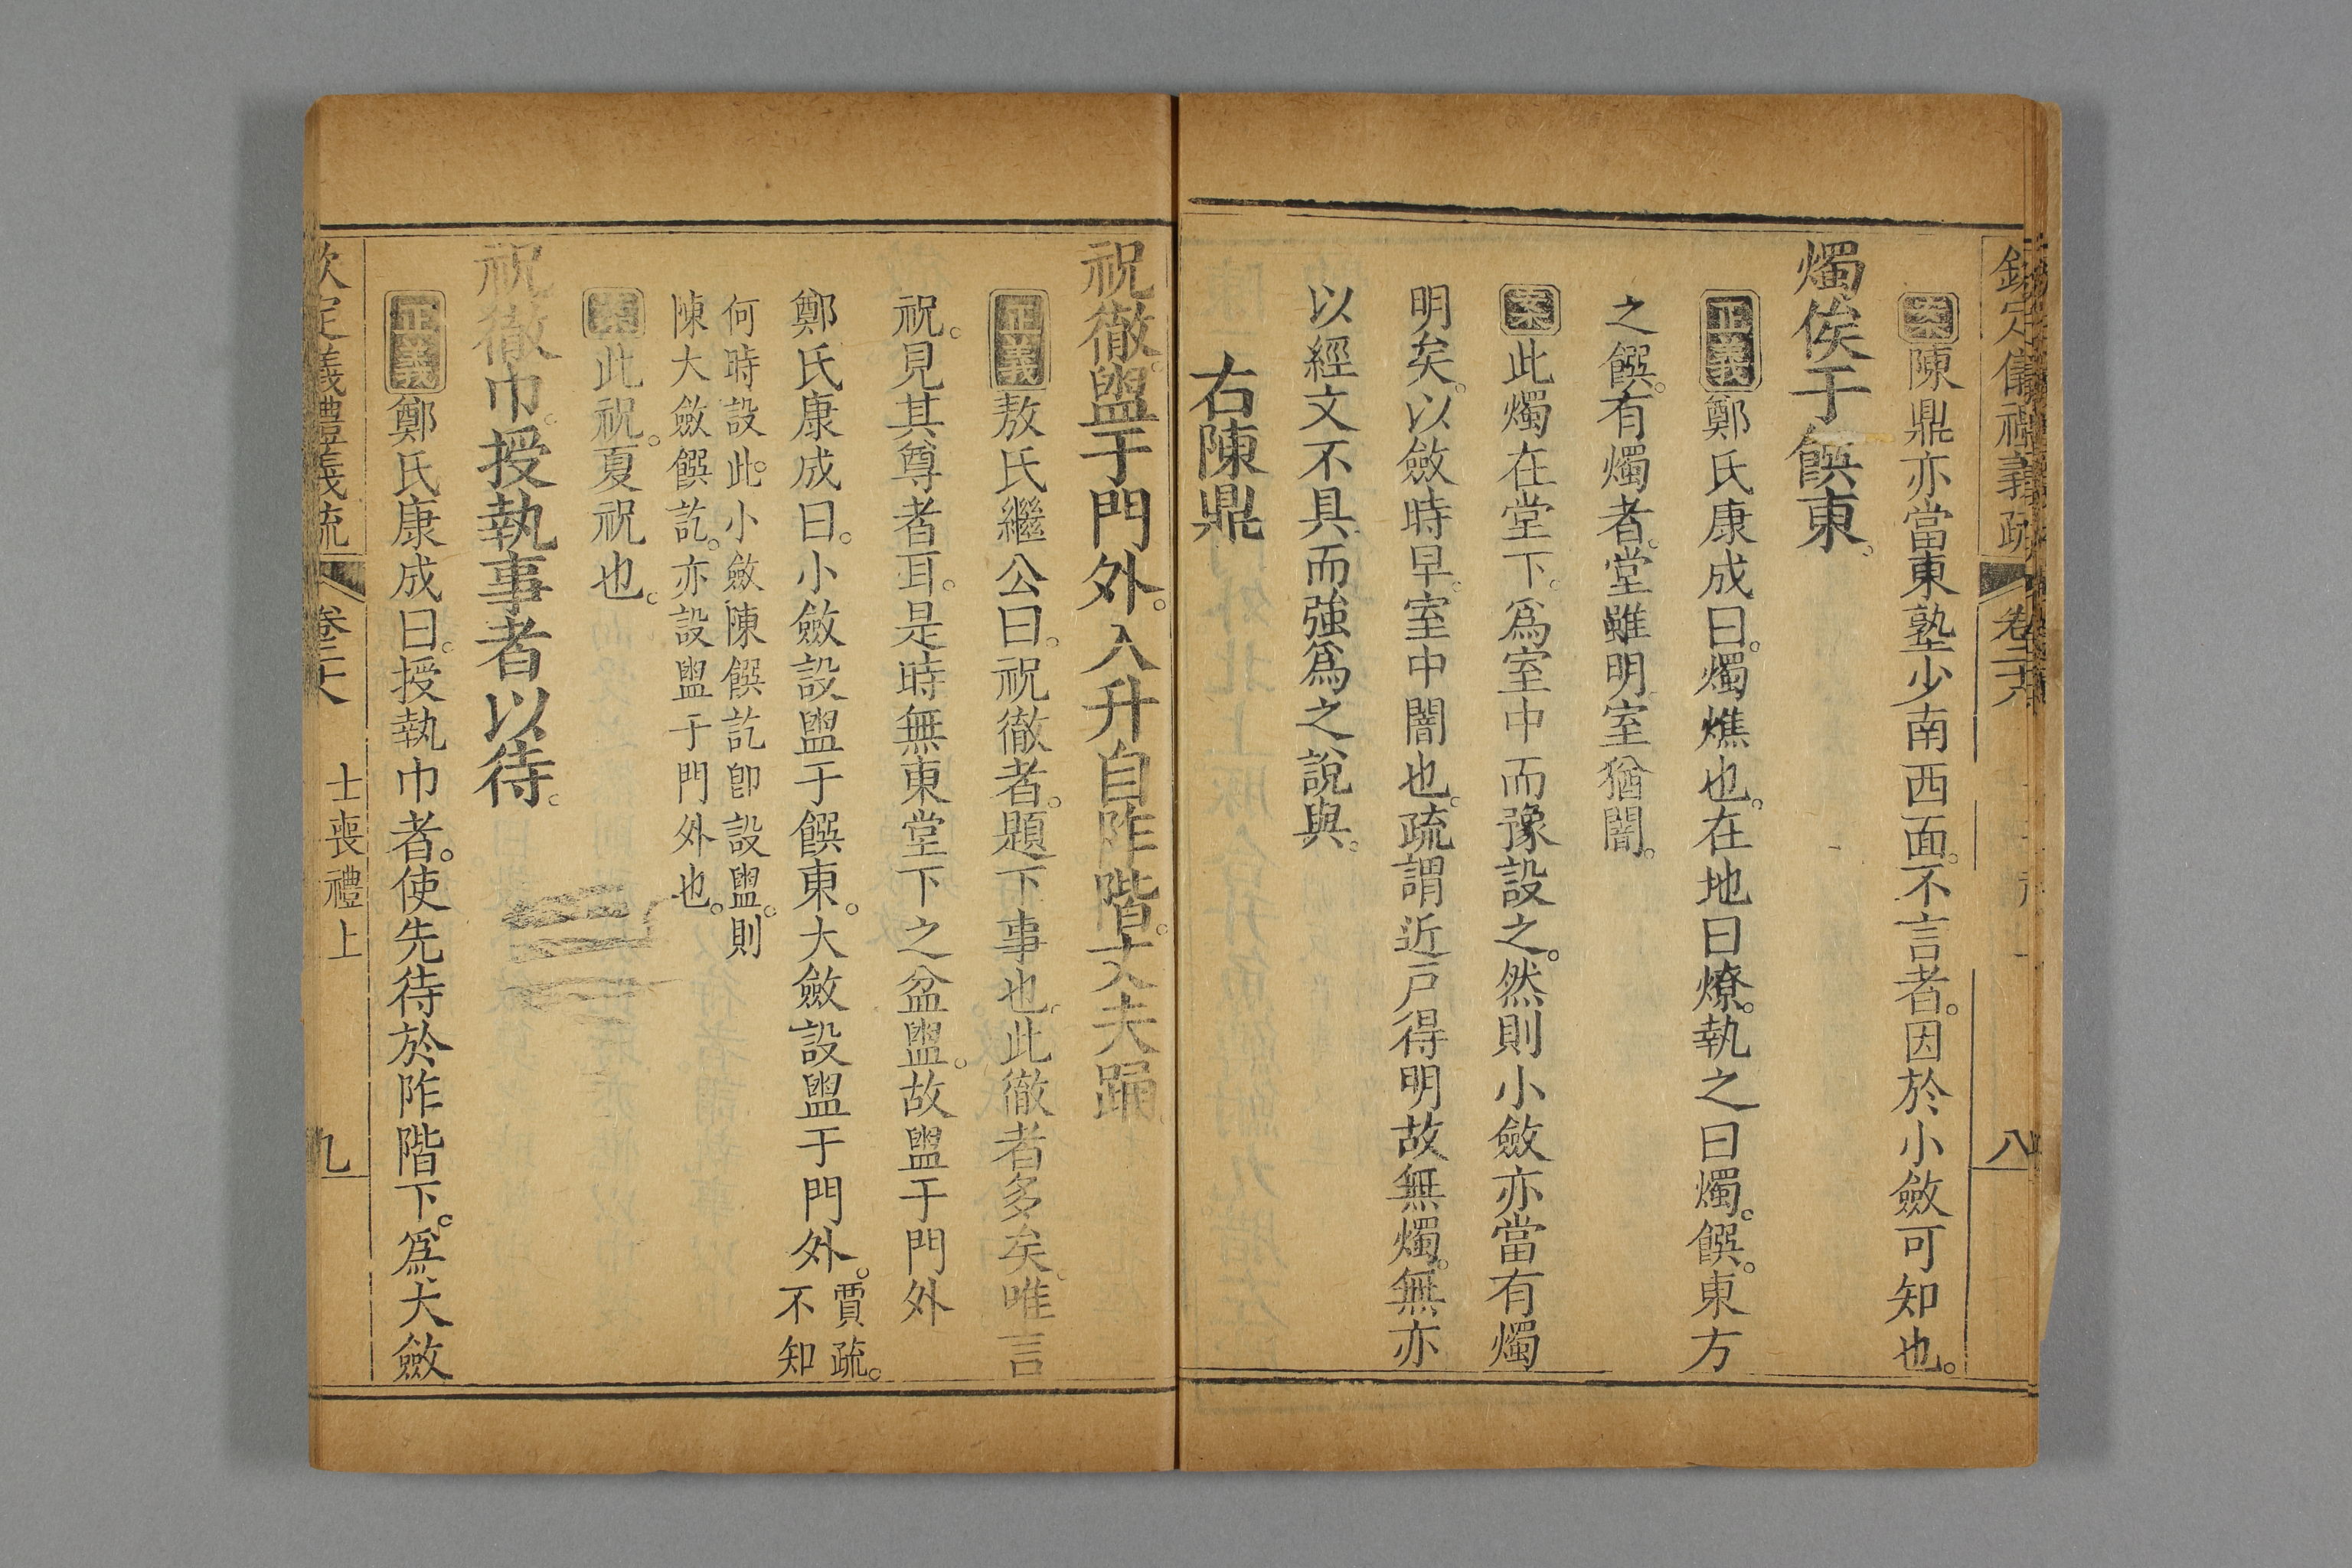 欽定儀禮義疏 卷二十八 八
案陳鼎亦當東塾少南西面。不言者。因於小斂可知也。
燭俟于饌東。
正義鄭氏康成曰。燭燋也。在地曰燎。執之曰燭。饌。東方
之饌。有燭者。堂雖明室猶闇。
案此燭在堂下。爲室中而豫設之。然則小斂亦當有燭
明矣。以斂時早。室中闇也。疏謂近戸得明故無燭。無亦
以經文不具而強爲之說與。
右陳鼎
祝徹。盥于門外。入升自阼階。丈夫踊
正義敖氏繼公曰。祝徹者。題下事也。此徹者多矣。唯言
祝。見其尊者耳。是時無東堂下之盆盥。故盥于門外
鄭氏康成曰。小斂設盥于饌東。大斂設盥于門外。賈疏。不知
何時設此。小斂陳饌訖卽設盥。則
陳大斂饌訖。亦設盥于門外也。
案此祝。夏祝也。
祝徹巾。授執事者以待。
正義鄭氏康成曰。授執巾者。使先待於阼階下。爲大斂
欽定義禮義疏 卷二十八 士喪禮上 九